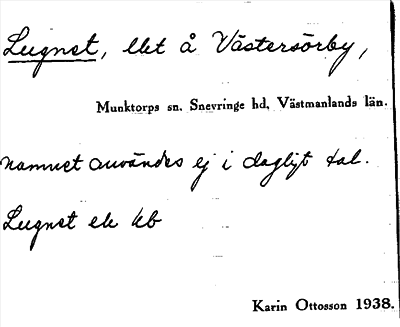 Lugnet, lht å Västersörby,
Munktorps sn. Snevringe hd, Västmanlands län.
namnet användes ej i dagligt tal.
Lugnet ek kb
Karin Ottosson 1938.